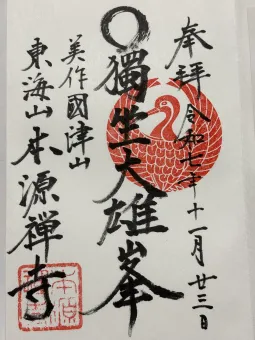 奉拝 令和七年十一月廿三日
獨坐大雄峯
美作國津山
東海山本源禪寺